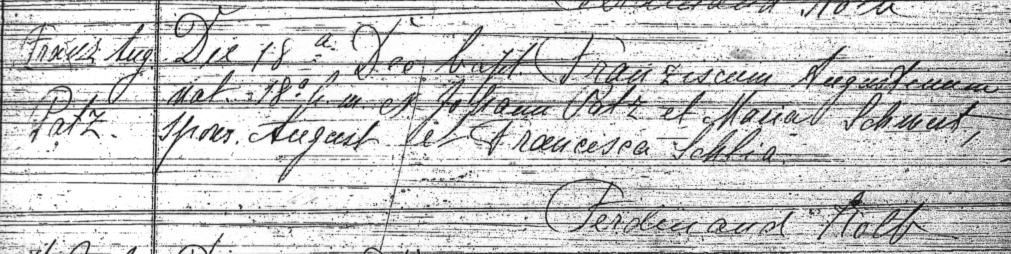 Ferdinand Kolb
Franz Aug. Die 18a Dec bapt. Franziscum Augustinum
nat. 18 h. m. ex Johann Patz et Maria Schmit,
Patz. Spons. August et Francisca Schlia.
Ferdinand Kolb